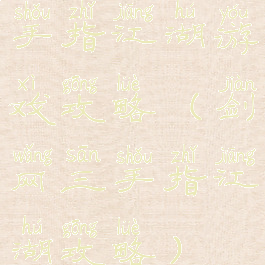 shǒu zhǐ jiāng hú yóu
手指江湖游
xì gōng lüè jiàn
戏攻略（剑
wǎng sān shǒu zhǐ jiāng
网三手指江
hú gōng lüè
湖攻略）